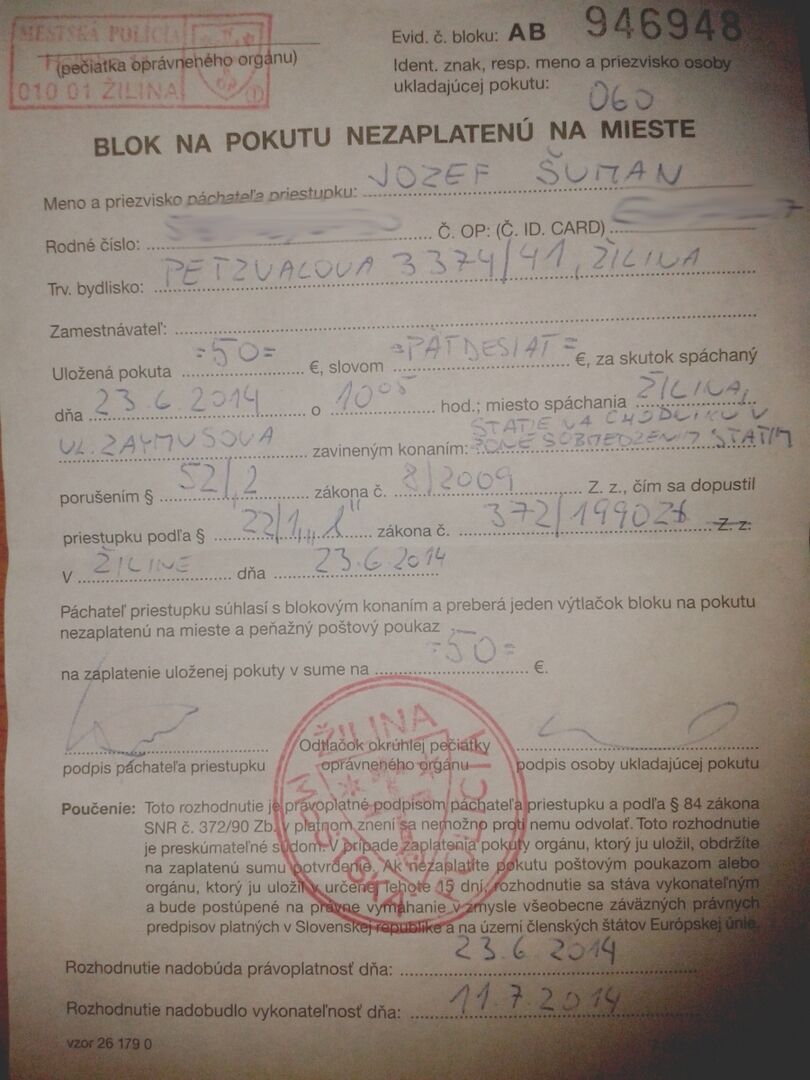 MESTSKÁ POLÍCIA
(pečiatka oprávneného orgánu)
010 01 ŽILINA
Evid. č. bloku: AB 946948
Ident. znak, resp. meno a priezvisko osoby
ukladajúcej pokutu: 060
BLOK NA POKUTU NEZAPLATENÚ NA MIESTE
Meno a priezvisko páchateľa priestupku: JOZEF ŠUMAN
Rodné číslo: Č. OP: (Č. ID. CARD)
Trv. bydlisko: PETZVALOVA 3374/41, ŽILINA
Zamestnávateľ:
Uložená pokuta =50= €, slovom =PÄŤDESIAT= €, za skutok spáchaný
dňa 23.6.2014 o 10 05 hod.; miesto spáchania ŽILINA,
UL. ZAYMUSOVA zavineným konaním: STÁTIE NA CHODNÍKU V
ZÓNE S OBMEDZENÝM STÁTÍM
porušením § 52/2 zákona č. 8/2009 Z. z., čím sa dopustil
priestupku podľa § 22/1,, zákona č. 372/1990 Z. z.
V ŽILINE dňa 23.6.2014
Páchateľ priestupku súhlasí s blokovým konaním a preberá jeden výtlačok bloku na pokutu
nezaplatenú na mieste a peňažný poštový poukaz
na zaplatenie uloženej pokuty v sume na =50= €.
podpis páchateľa priestupku
Odtlačok okrúhlej pečiatky
oprávneného orgánu
podpis osoby ukladajúcej pokutu
ŽILINA
MESTSKÁ POLÍCIA
Poučenie: Toto rozhodnutie je právoplatné podpisom páchateľa priestupku a podľa § 84 zákona
SNR č. 372/90 Zb. v platnom znení sa nemožno proti nemu odvolať. Toto rozhodnutie
je preskúmateľné súdom. V prípade zaplatenia pokuty orgánu, ktorý ju uložil, obdržíte
na zaplatenú sumu potvrdenie. Ak nezaplatíte pokutu poštovým poukazom alebo
orgánu, ktorý ju uložil v určenej lehote 15 dní, rozhodnutie sa stáva vykonateľným
a bude postúpené na právne vymáhanie v zmysle všeobecne záväzných právnych
predpisov platných v Slovenskej republike a na území členských štátov Európskej únie.
Rozhodnutie nadobúda právoplatnosť dňa: 23.6.2014
Rozhodnutie nadobudlo vykonateľnosť dňa: 11.7.2014
vzor 26 179 0